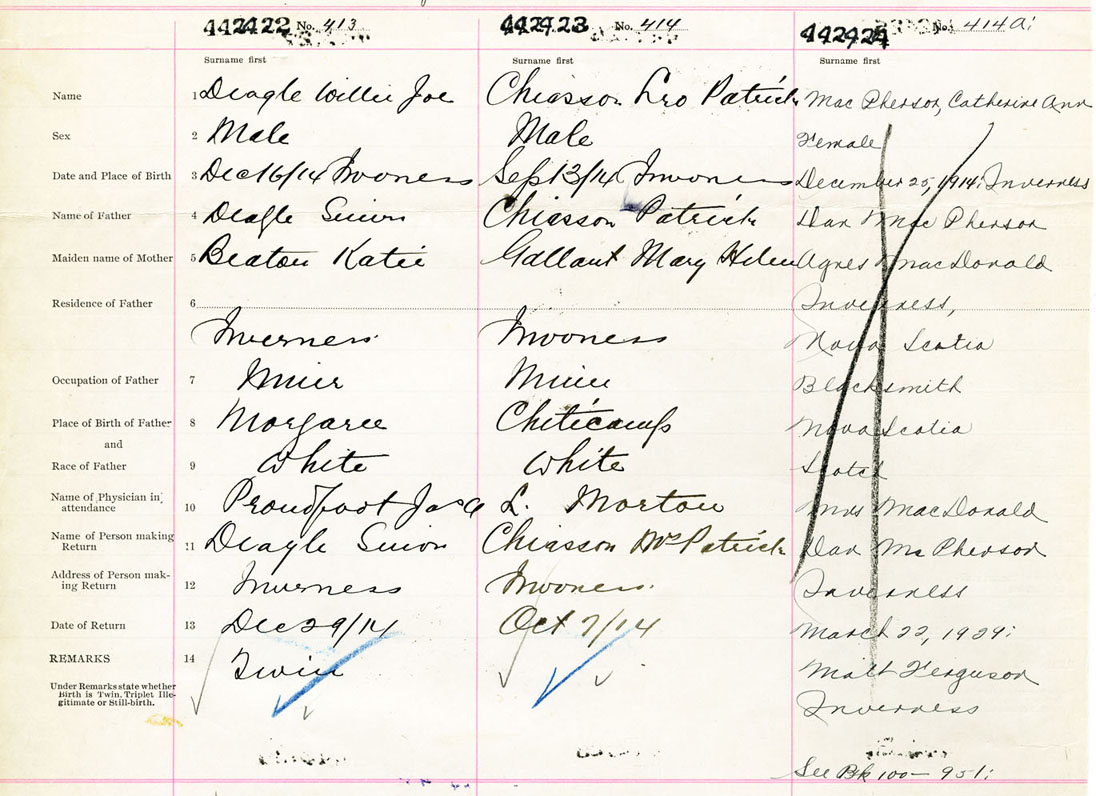 442422 No. 413
442423 No. 414
442424 No. 414a
Surname first
Surname first
Surname first
Name 1 Deagle Willie Joe
Chiasson Leo Patrick
Mac Pherson, Catherine Ann
Sex 2 Male
Male
Female
Date and Place of Birth 3 Dec 16/14 Inverness
Sep 13/14 Inverness
December 25, 1914, Inverness
Name of Father 4 Deagle Simon
Chiasson Patrick
Dan Mac Pherson
Maiden name of Mother 5 Beaton Katie
Gallant Mary Helen
Agnes MacDonald
Residence of Father 6
Inverness
Inverness
Inverness,
Nova Scotia
Occupation of Father 7 Miner
Miner
Blacksmith
Place of Birth of Father 8 Margaree
Cheticamp
Nova Scotia
and
Race of Father 9 White
White
Scotch
Name of Physician in
attendance 10 Proudfoot Jas A
L. Morton
Mrs MacDonald
Name of Person making
Return 11 Deagle Simon
Chiasson Mrs Patrick
Dan Mc Pherson
Address of Person mak-
ing Return 12 Inverness
Inverness
Inverness
Date of Return 13 Dec 29/14
Oct 7/14
March 22, 1929
REMARKS 14 Twin
Malt Ferguson
Inverness
Under Remarks state whether
Birth is Twin, Triplet Ille-
gitimate or Still-birth.
See Bk 100 - 951